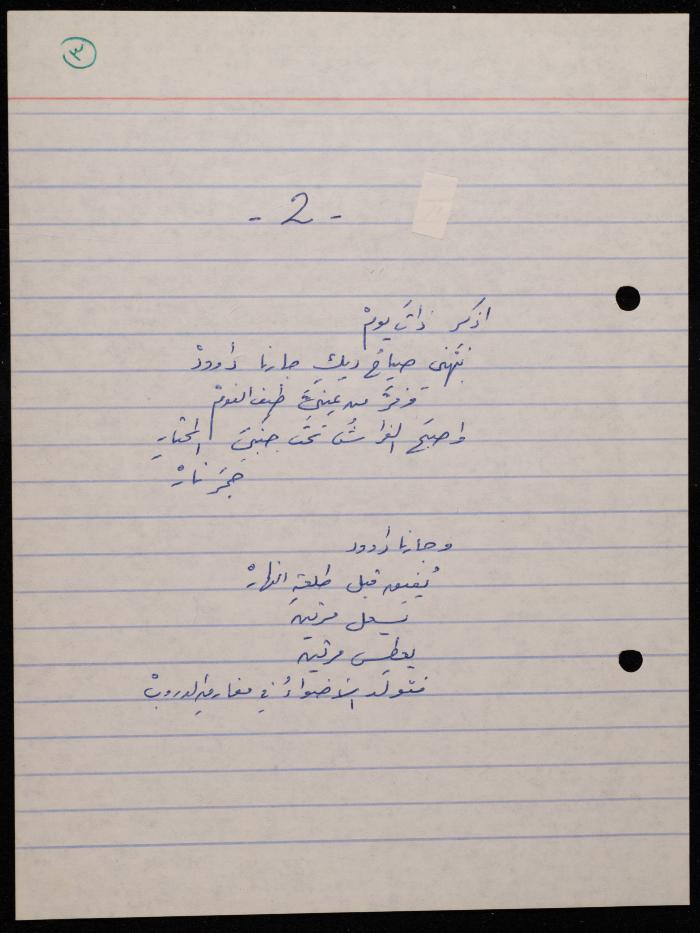 ٣
- 2 -
اذكر ذاتَ يومْ
نبّهني صياحُ ديكِ جارنا داوودْ
وَفرَّ من عينيَّ طيف النومْ
واصبَح الفراشُ تحتَ جنبيَ
جمرَ نارْ
وجارنا داوود
يُفيق قبل طلعةِ النهارْ
يسعل مرتين
يعطس مرتين
فتولَد الأضواءُ في مفارق الدروبْ